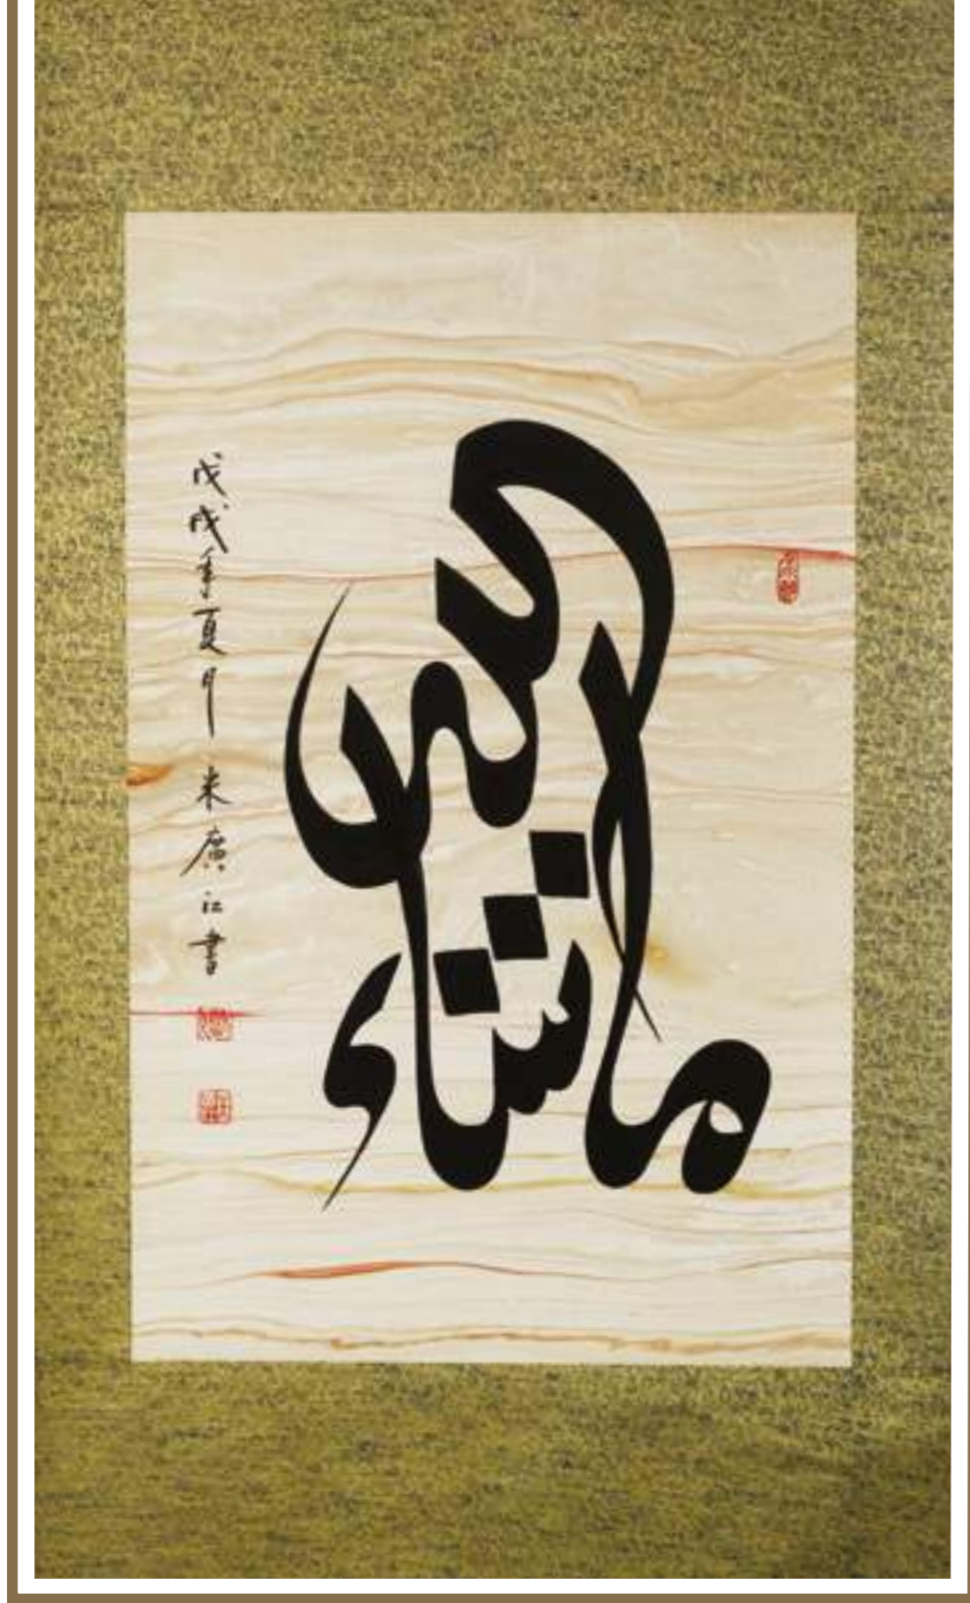 ما شاء الله
戊戌年夏月米廣江書